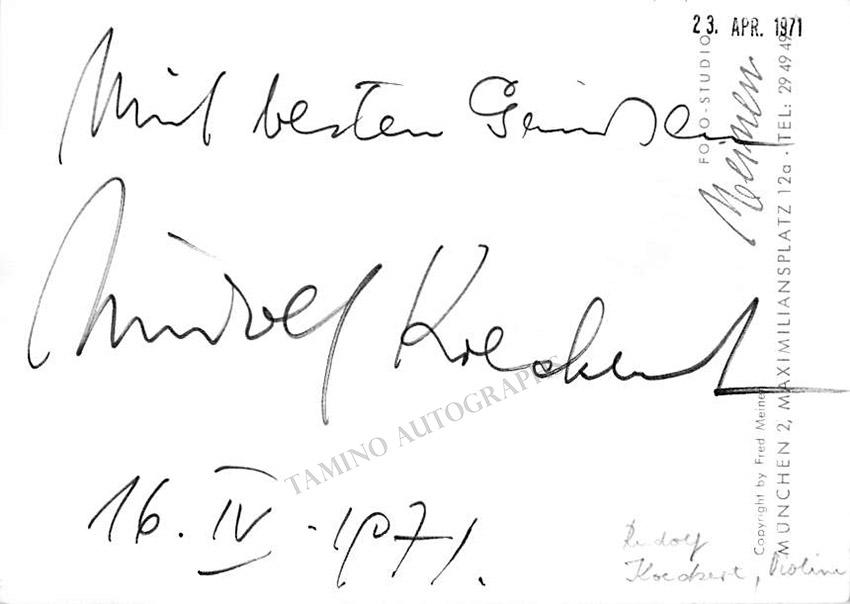 23. APR. 1971
Mit besten Grüssen
Rudolf Koeckert
16. IV. 1971.
TAMINO AUTOGRAPHS
Rudolf
Koeckert, Violine
FOTO-STUDIO
Meinen
MÜNCHEN 2, MAXIMILIANSPLATZ 12a · TEL: 29 49 49
Copyright by Fred Meinen